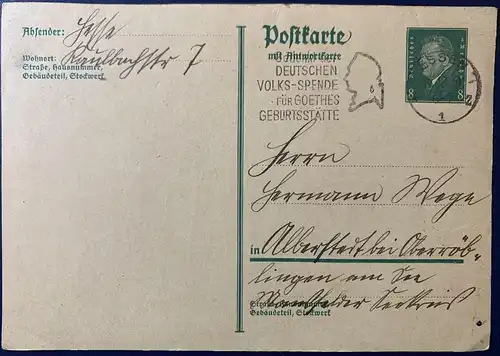 Absender: Hesse
Wohnort: Kaulbachstr 7
Straße, Hausnummer,
Gebäudeteil, Stockwerk
Postkarte
mit Antwortkarte
DEUTSCHEN
VOLKS-SPENDE
FÜR GOETHES
GEBURTSSTÄTTE
Deutsches Reich
8 8
1
Herrn
Hermann Wege
in Alberstedt bei Oberröb-
lingen am See
Mansfelder Seekreis
Gebäudeteil, Stockwerk